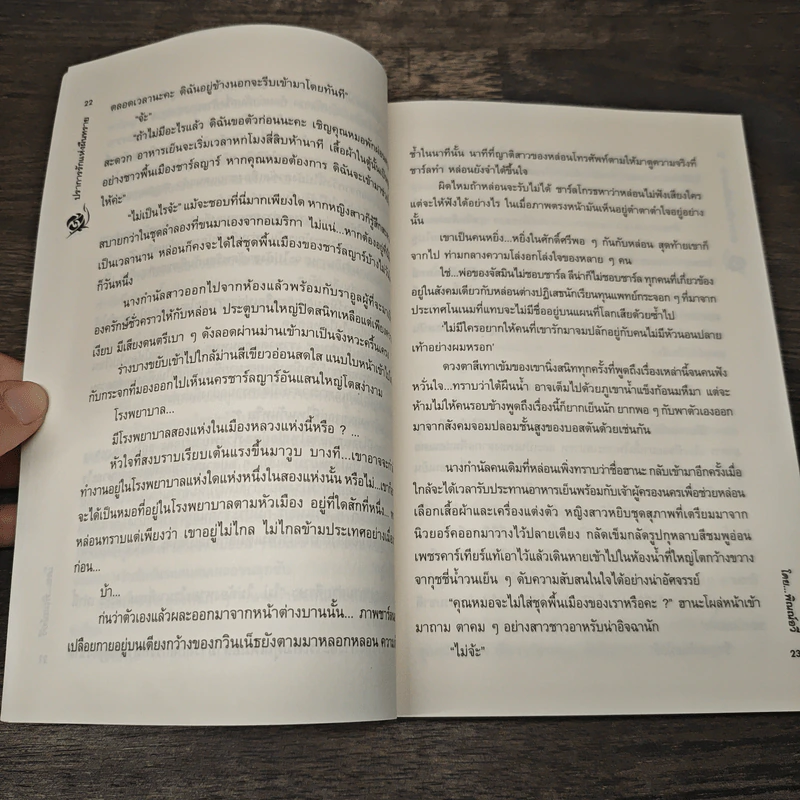 22
ปราการรักแห่งผืนทราย
ตลอดเวลานะคะ ดิฉันอยู่ข้างนอกจะรีบเข้ามาโดยทันที"
"จ้ะ"
"ถ้าไม่มีอะไรแล้ว ดิฉันขอตัวก่อนนะคะ เชิญคุณหมอพักผ่อน
สะดวก อาหารเย็นจะเริ่มเวลาหกโมงสี่สิบห้านาที เสื้อผ้าในตู้นั้นเป็น
อย่างชาวพื้นเมืองชาร์ลญาร์ หากคุณหมอต้องการ ดิฉันจะเข้ามาช่วย
ให้ค่ะ"
"ไม่เป็นไรจ้ะ" แม้จะชอบที่นี่มากเพียงใด หากหญิงสาวก็รู้สึก
สบายกว่าในชุดลำลองที่ขนมาเองจากอเมริกา ไม่แน่...หากต้องอยู่ที่นี่
เป็นเวลานาน หล่อนก็คงจะได้ใส่ชุดพื้นเมืองของชาร์ลญาร์บ้าง
ก็วันหนึ่ง
นางกำนัลสาวออกไปจากห้องแล้วพร้อมกับราอูลผู้ที่จะมา
องครักษ์ชั่วคราวให้กับหล่อน ประตูบานใหญ่ปิดสนิทเหลือแต่เพียง
เงียบ มีเสียงดนตรีเบา ๆ ดังลอดผ่านม่านเข้ามาเป็นจังหวะครื้นเครง
ร่างบางขยับเข้าไปใกล้ม่านสีเขียวอ่อนสดใส แนบใบหน้าเข้าไป
กับกระจกที่มองออกไปเห็นนครชาร์ลญาร์อันแสนใหญ่โตสง่างาม
โรงพยาบาล...
มีโรงพยาบาลสองแห่งในเมืองหลวงแห่งนี้หรือ ? ...
หัวใจที่สงบราบเรียบเต้นแรงขึ้นมาวูบ บางที...เขาอาจจะ
ทำงานอยู่ในโรงพยาบาลแห่งใดแห่งหนึ่งในสองแห่งนั้น หรือไม่...เขาก็
จะได้เป็นหมอที่อยู่ในโรงพยาบาลตามหัวเมือง อยู่ที่ใดสักที่หนึ่ง...
หล่อนทราบแต่เพียงว่า เขาอยู่ไม่ไกล ไม่ไกลข้ามประเทศอย่างเมื่อ
ก่อน...
บ้า...
ก่นว่าตัวเองแล้วผละออกมาจากหน้าต่างบานนั้น... ภาพชาร์ล
เปลือยกายอยู่บนเตียงกว้างของกวินเน็ธยังตามมาหลอกหลอน ความ
ซ้ำในนาทีนั้น นาทีที่ญาติสาวของหล่อนโทรศัพท์ตามให้มาดูความจริงที่
ชาร์ลทำ หล่อนยังจำได้ขึ้นใจ
ผิดไหมถ้าหล่อนจะรับไม่ได้ ชาร์ลโกรธหาว่าหล่อนไม่ฟังเสียงใคร
แต่จะให้ฟังได้อย่างไร ในเมื่อภาพตรงหน้ามันเห็นอยู่ตำตาตำใจอยู่อย่าง
นั้น
เขาเป็นคนหยิ่ง...หยิ่งในศักดิ์ศรีพอ ๆ กันกับหล่อน สุดท้ายเขาก็
จากไป ท่ามกลางความโล่งอกโล่งใจของหลาย ๆ คน
ใช่...พ่อของจัสมินไม่ชอบชาร์ล ลีน่าก็ไม่ชอบชาร์ล ทุกคนที่เกี่ยวข้อง
อยู่ในสังคมเดียวกับหล่อนต่างปฏิเสธนักเรียนทุนแพทย์กระจอก ๆ ที่มาจาก
ประเทศโนเนมที่แทบจะไม่มีชื่ออยู่บนแผนที่โลกเสียด้วยซ้ำไป
'ไม่มีใครอยากให้คนที่เขารักมาจมปลักอยู่กับคนไม่มีหัวนอนปลาย
เท้าอย่างผมหรอก'
ดวงตาสีเทาเข้มของเขานิ่งสนิททุกครั้งที่พูดถึงเรื่องเหล่านี้จนคนฟัง
หวั่นใจ...ทราบว่าใต้ผืนน้ำ อาจเต็มไปด้วยภูเขาน้ำแข็งก้อนมหึมา แต่จะ
ห้ามไม่ให้คนรอบข้างพูดถึงเรื่องนี้ก็ยากเย็นนัก ยากพอ ๆ กับพาตัวเองออก
มาจากสังคมจอมปลอมชั้นสูงของบอสตันด้วยเช่นกัน
นางกำนัลคนเดิมที่หล่อนเพิ่งทราบว่าชื่อฮานะ กลับเข้ามาอีกครั้งเมื่อ
ใกล้จะได้เวลารับประทานอาหารเย็นพร้อมกับเจ้าผู้ครองนครเพื่อช่วยหล่อน
เลือกเสื้อผ้าและเครื่องแต่งตัว หญิงสาวหยิบชุดสุภาพที่เตรียมมาจาก
นิวยอร์คออกมาวางไว้ปลายเตียง กลัดเข็มกลัดรูปกุหลาบสีชมพูอ่อน
เพชรคาร์เทียร์แท้เอาไว้แล้วเดินหายเข้าไปในห้องน้ำที่ใหญ่โตกว้างขวาง
จากุซซี่น้ำวนเย็น ๆ ดับความสับสนในใจได้อย่างน่าอัศจรรย์
"คุณหมอจะไม่ใส่ชุดพื้นเมืองของเราหรือคะ ?" ฮานะโผล่หน้าเข้า
มาถาม ตาคม ๆ อย่างสาวชาวอาหรับน่าอิจฉานัก
"ไม่จ้ะ"
โดย...
23